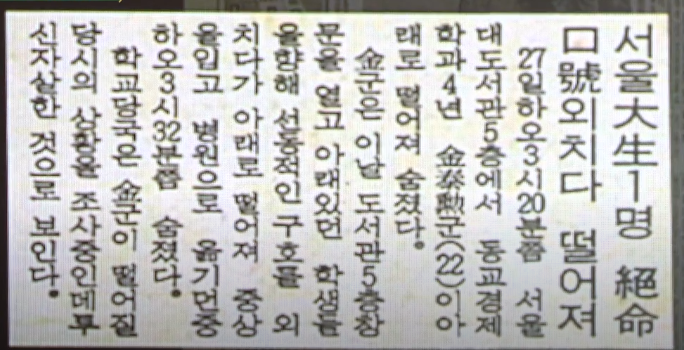 서울大生1명 絕命
口號외치다 떨어져
27일하오3시20분쯤 서울
대도서관5층에서 동교경제
학과4년 金泰勳군(22)이아
래로 떨어져 숨졌다。
金군은 이날 도서관5층창
문을 열고 아래있던 학생들
을향해 선동적인 구호를 외
치다가 아래로 떨어져 중상
을입고 병원으로 옮기던중
하오3시32분쯤 숨졌다。
학교당국은 金군이 떨어질
당시의 상황을 조사중인데투
신자살한 것으로 보인다。